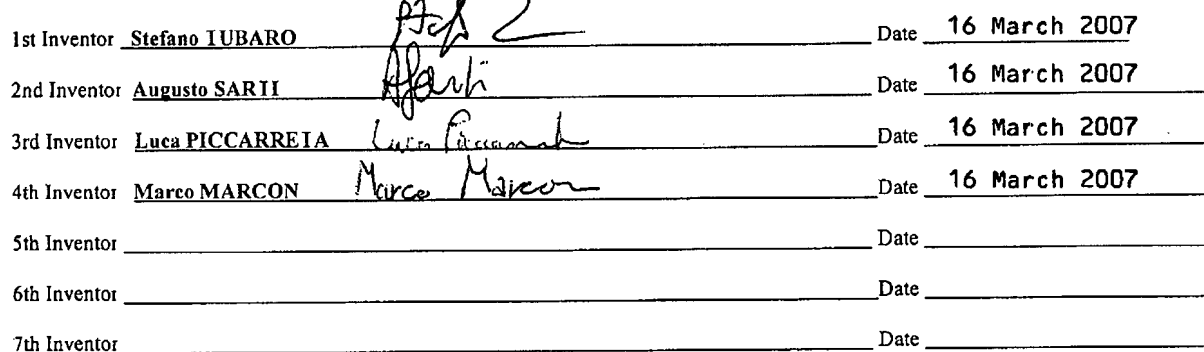 1st Inventor Stefano TUBARO Date 16 March 2007
2nd Inventor Augusto SARTI Date 16 March 2007
3rd Inventor Luca PICCARRETA Luca Date 16 March 2007
4th Inventor Marco MARCON Marco Marcon Date 16 March 2007
5th Inventor Date
6th Inventor Date
7th Inventor Date